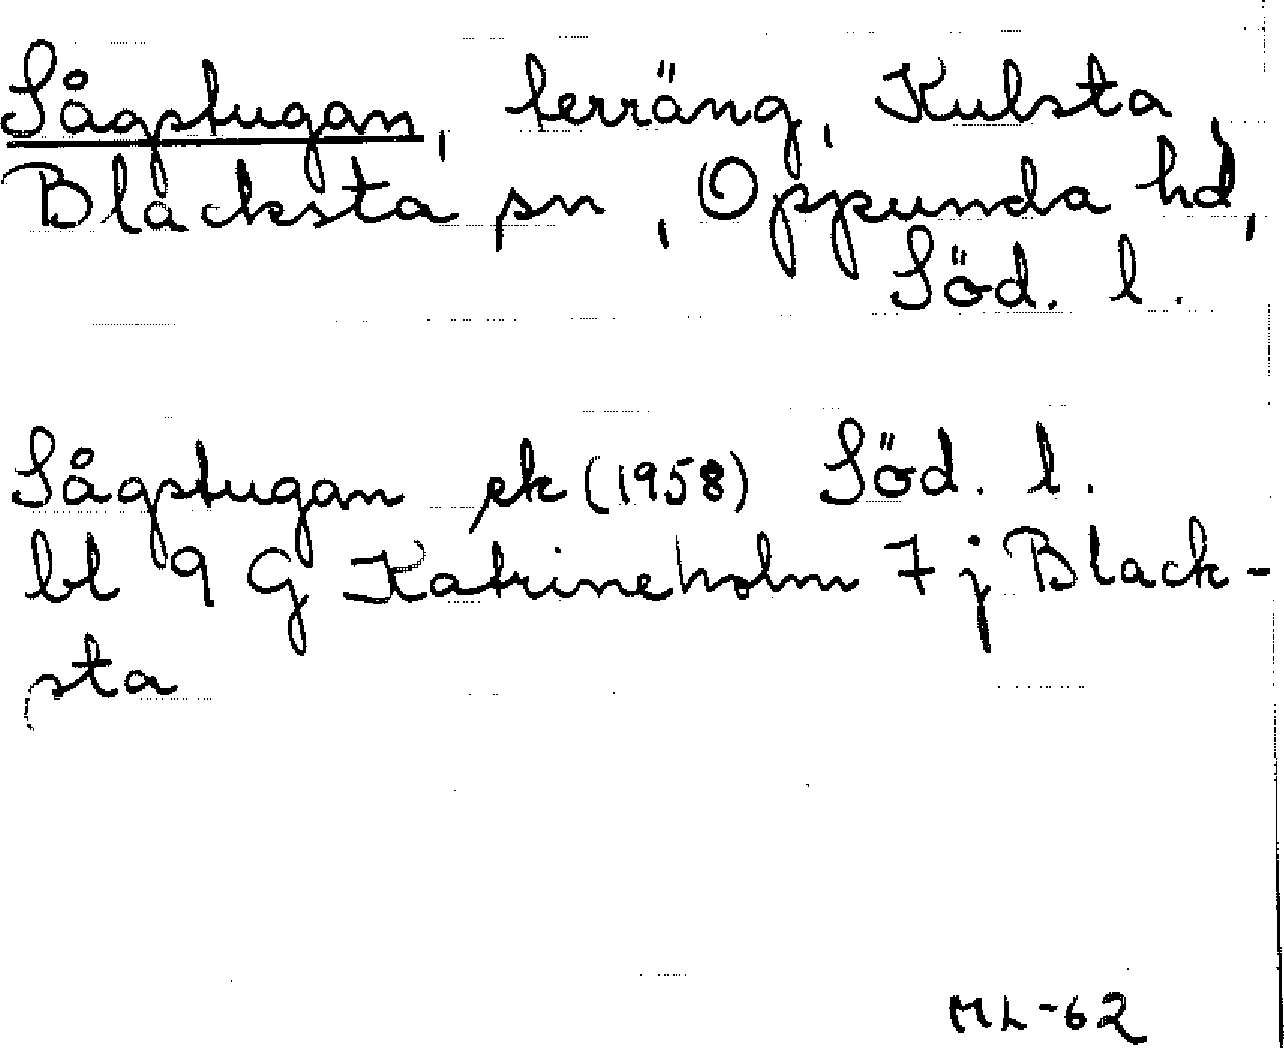 Sågstugan, terräng, Kulsta,
Blacksta sn, Oppunda hd,
Söd. l.
Sågstugan ek (1958) Söd. l.
bl 9 G Katrineholm 7 j Black-
sta
ML-62